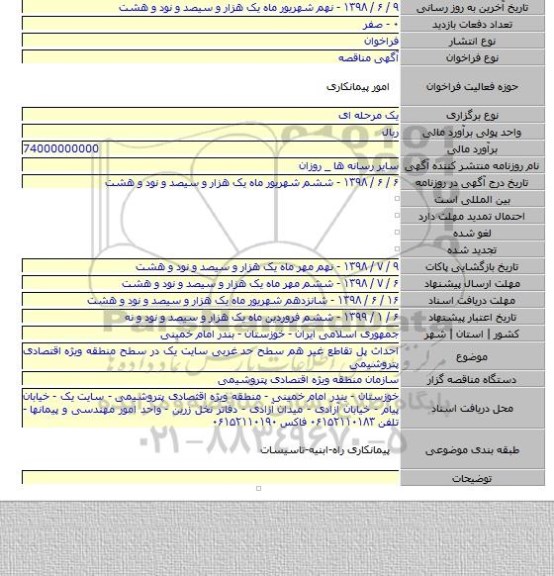 تاریخ آخرین به روز رسانی ۹ / ۶ / ۱۳۹۸ - نهم شهریور ماه یک هزار و سیصد و نود و هشت
تعداد دفعات بازدید ۰ - صفر
نوع انتشار فراخوان
نوع فراخوان آگهی مناقصه
حوزه فعالیت فراخوان امور پیمانکاری
نوع برگزاری یک مرحله ای
واحد پولی برآورد مالی ریال
برآورد مالی 74000000000
نام روزنامه منتشر کننده آگهی سایر رسانه ها _ روزان
تاریخ درج آگهی در روزنامه ۶ / ۶ / ۱۳۹۸ - ششم شهریور ماه یک هزار و سیصد و نود و هشت
بین المللی است
احتمال تمدید مهلت دارد
لغو شده
تجدید شده
تاریخ بازگشایی پاکات ۹ / ۷ / ۱۳۹۸ - نهم مهر ماه یک هزار و سیصد و نود و هشت
مهلت ارسال پیشنهاد ۶ / ۷ / ۱۳۹۸ - ششم مهر ماه یک هزار و سیصد و نود و هشت
مهلت دریافت اسناد ۱۶ / ۶ / ۱۳۹۸ - شانزدهم شهریور ماه یک هزار و سیصد و نود و هشت
تاریخ اعتبار پیشنهاد ۶ / ۱ / ۱۳۹۹ - ششم فروردین ماه یک هزار و سیصد و نود و نه
کشور | استان | شهر جمهوری اسلامی ایران - خوزستان - بندر امام خمینی
موضوع احداث پل تقاطع غیر هم سطح حد غربی سایت یک در سطح منطقه ویژه اقتصادی
پتروشیمی
دستگاه مناقصه گزار سازمان منطقه ویژه اقتصادی پتروشیمی
محل دریافت اسناد خوزستان - بندر امام خمینی - منطقه ویژه اقتصادی پتروشیمی - سایت یک - خیابان
پیام - خیابان آزادی - میدان آزادی - دفاتر نخل زرین - واحد امور مهندسی و پیمانها -
تلفن ۰۶۱۵۲۱۱۰۱۸۳ فاکس ۰۶۱۵۲۱۱۰۱۹۰
۰۲۱-۸۸۳۴۹۶۷۰-۵
طبقه بندی موضوعی پیمانکاری راه-ابنیه-تاسیسات
توضیحات